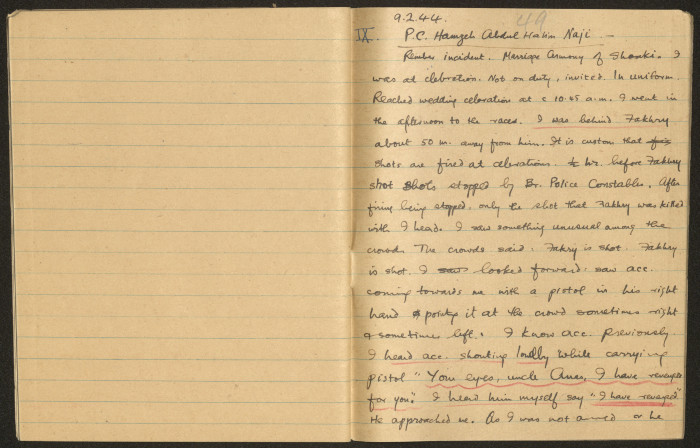 9.2.44. 49
IX. P.C. Hamzeh Abdul Halim Naji —
Rember incident. Marriage cermony of Shauki. I
was at clebration. Not on duty, invited. In uniform.
Reached wedding celebration at c 10.45 a.m. I went in
the afternoon to the races. I was behind Fakhry
about 50 m. away from him. It is custom that
shots are fired at clerations. ½ hr. before Fakhry
shot shots stopped by Br. Police Constables. After
firing being stopped, only the shot that Fakhry was killed
with I heard. I saw something unusual among the
crowds. The crowds said: Fakhry is shot. Fakhry
is shot. I saw looked forward: saw acc.
coming towards me with a pistol in his right
hand & pointg it at the crowd sometimes right
& sometimes left. I know acc. previously.
I heard acc. shouting loudly while carrying
pistol "Your eyes, uncle I have revenged
for you." I heard him myself say "I have revenged"
He approached me. As I was not armed or he